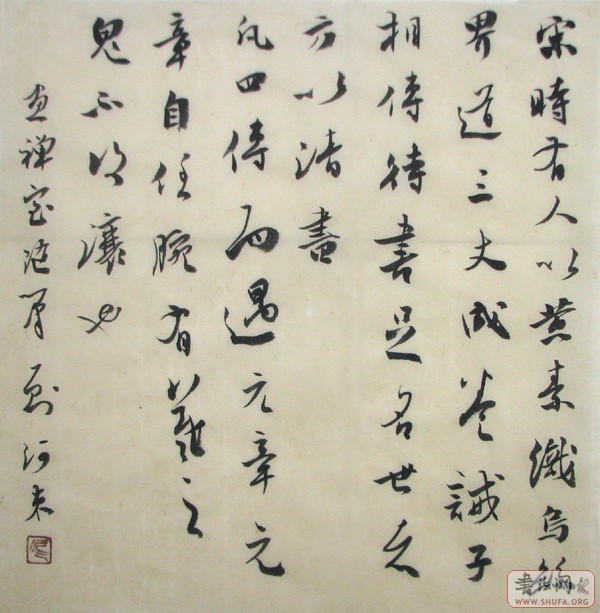 宋時有人以黄素織烏絲
界道三丈成卷誡子
相傳待書足名世者
方以請書
凡四傳而遇元章元
章自任腕有羲之
鬼不復讓也
畫禪室随筆
WWW.SHUFA.ORG